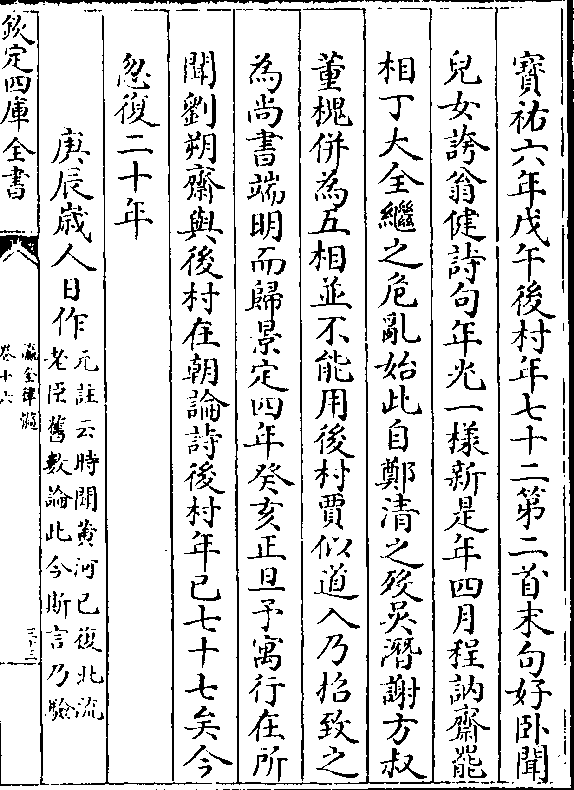 寶祐六年戊午後村年七十二第二首末句好卧聞
兒女誇翁健詩句年光一樣新是年四月程訥齋罷
相丁大全繼之危亂始此自鄭清之歿吳潛謝方叔
董槐併為五相並不能用後村賈似道入乃招致之
為尚書端明而歸景定四年癸亥正旦予寓行在所
聞劉朔齋與後村在朝論詩後村年已七十七矣今
忽復二十年
庚辰歲人日作元註云時聞黄河已復北流
老臣舊數論此今斯言乃驗
欽定四庫全書
瀛奎律髓
卷十六
三十三